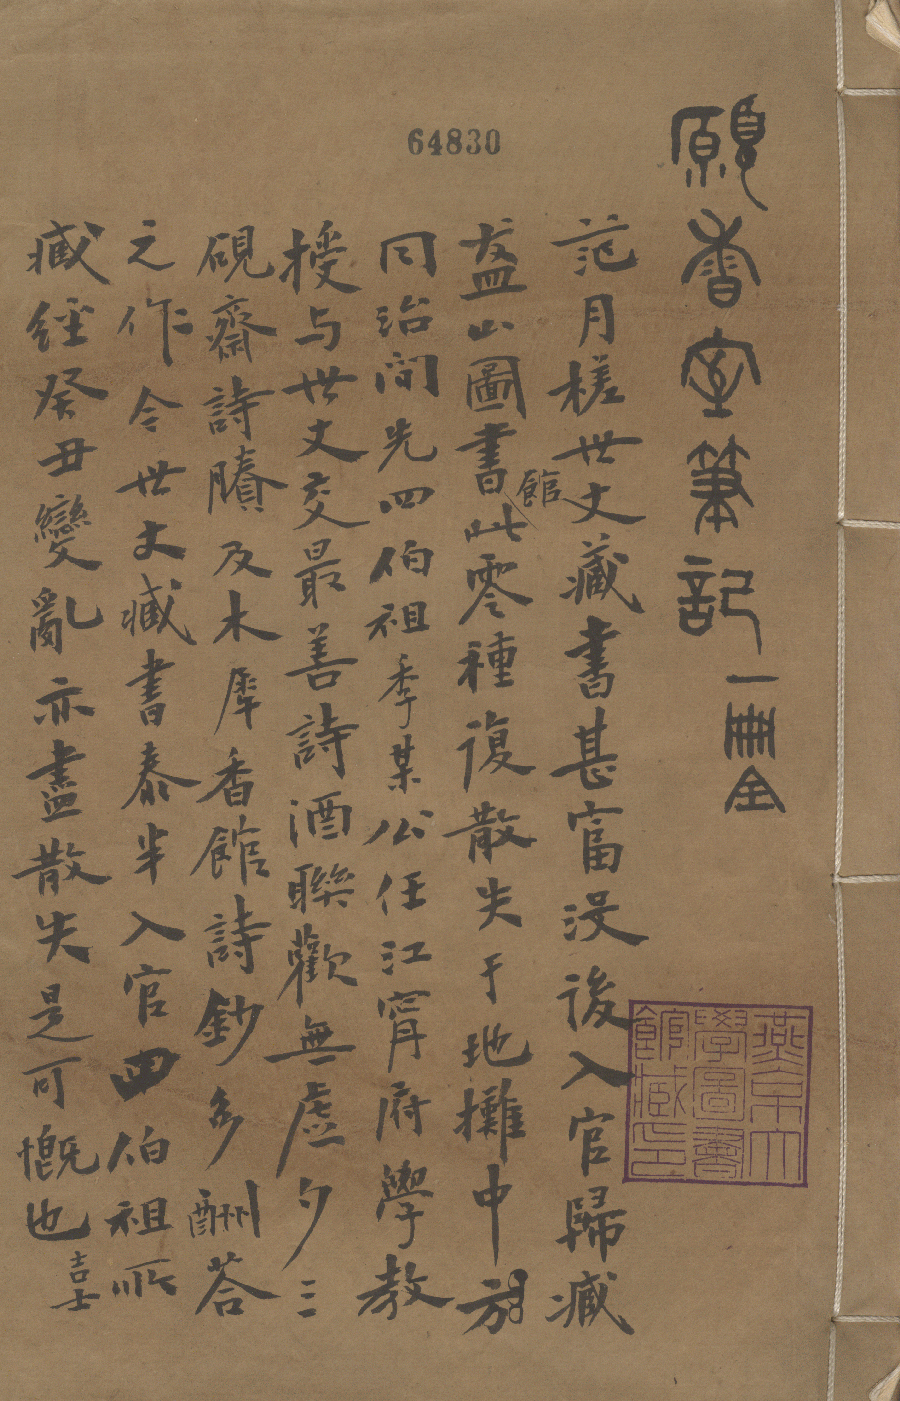 64830
願香室筆記
一冊全
范月槎世丈藏書甚富没後入官歸藏
盋山圖書館此零種復散失于地攤中
同治間先四伯祖季某公任江寧府學教
授与世丈交最善詩酒聯歡無虚夕三
硯齋詩賸及木犀香館詩鈔多酬荅
之作今世丈臧書泰半入官四伯祖所
臧經癸丑變亂亦盡散失是可慨也
吉士
燕京大
學圖書
館藏印